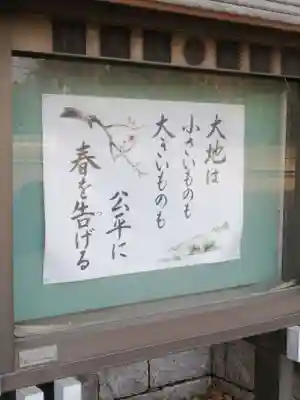 大地は
小さいものも
大きいものも
公平に
春を告げる